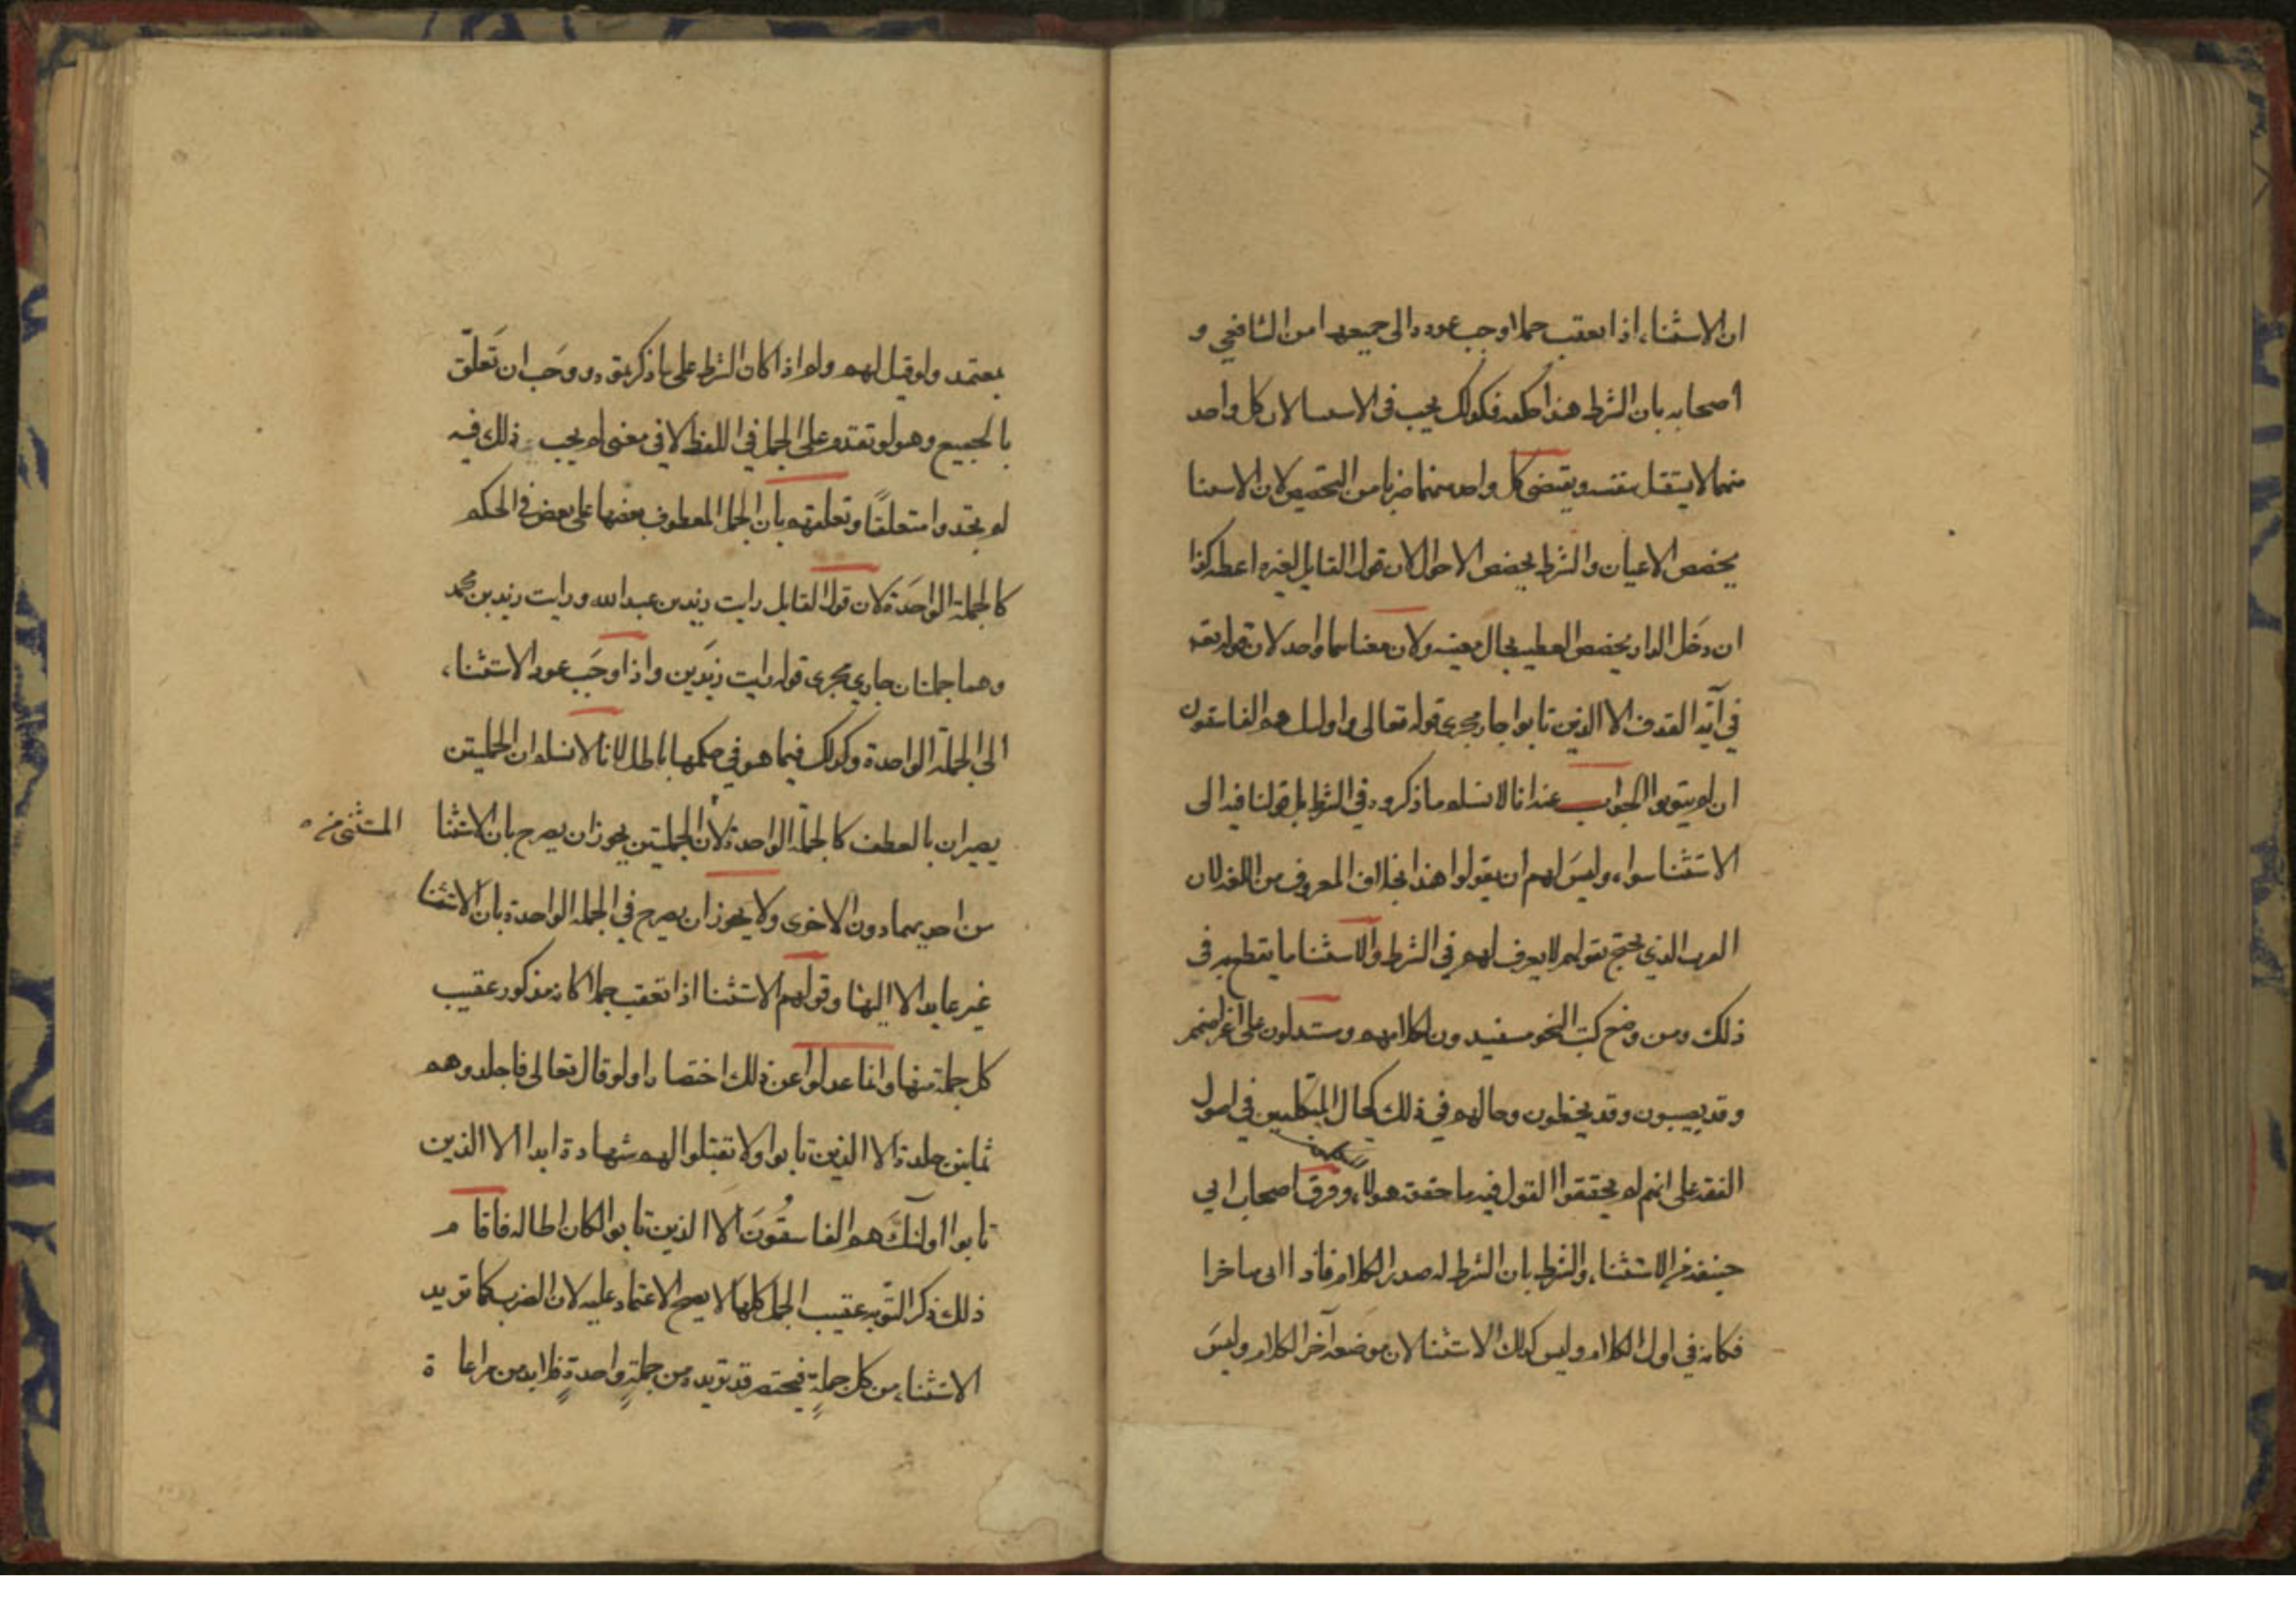 ان الاستثناء اذا تعقب جملا وجب عوده الى جميعها من الشافعي و
اصحابه بان الشرط هذا حكمه فكذلك يجب فى الاستثنا لان كل واحد
منهما لا يستقل بنفسه ويقتضى كل واحد منهما ضربا من التخصيص لان الاستثنا
يخصص الاعيان والشرط يخصص الاحوال لان قول القايل لغيره اعطه كذا
ان دخل الدار يخصص العطيه بحال معينه ولان معناهما واحد لان قوله تعه
في آية القذف الا الذين تابوا جار مجرى قوله تعالى واوليك هم الفاسقون
ان لم يتوبوا الجواب عنه انا لا نسلم ما ذكروه في الشرط بل قولنا فيه الى
الاستثنا سواء وليس لهم ان يقولوا هذا بخلاف المعروف من اللغه لان
العرب الذي يحتج بقولهم لا يعرف لهم في الشرط والاستثنا ما يقطع به فى
ذلك ومن وضع كتب النحو مفيدون لكلامهم ومستدلون على اغراضهم
وقد يصيبون وقد يخطون وحالهم في ذلك كحال المتكلمين في اصول
الفقه على انهم لم يحققوا القول فيه ما حققه هولاء وفرق اصحاب ابي
حنيفه من الاستثناء والشرط بان الشرط له صدر الكلام فاذا اتى متاخرا
فكانه في اول الكلام وليس كذلك الاستثنا لان موضعه آخر الكلام وليس
بمعتمد ولو قيل لهم ولم اذا كان الشرط على ما ذكرتموه ووجب ان تعلق
بالجميع وهو لو تقدم على الجمل في اللفظ لا في معنى لم يجب ذلك فيه
لم يجدوا متعلقا وتعلقهم بان الجمل المعطوف بعضها على بعض فى الحكم
كالجملة الواحدة لان قول القايل رايت زيد بن عبد الله ورايت زيد بن محمد
وهما جملتان جاري مجرى قوله رايت زيدين واذا وجب عود الاستثناء
الى الجملة الواحدة وكذلك فيما هو في حكمها باطل لانا لا نسلم ان الجملتين
يصيران بالعطف كالجملة الواحدة لان الجملتين يجوز ان يصرح بان الاستثنا
المستثنى من
من احديهما دون الاخرى ولا يجوز ان يصرح في الجمله الواحدة بان الاستثنا
غير عايد الا اليها وقولهم الاستثنا اذا تعقب جملا كانه مذكور عقيب
كل جملة منها وانما عدلوا عن ذلك اختصارا ولو قال تعالى فاجلدوهم
ثمانين جلدة الا الذين تابوا ولا تقبلوا لهم شهادة ابدا الا الذين
تابوا اولئك هم الفاسقون الا الذين تابوا لكان اطاله فاقام
ذلك ذكر التوبه عقيب الجمل كلها لا يصح الاعتماد عليه لان الضرب كما تريد
الاستثناء من كل جملة فيختصر قد تريده من جملة واحدة فلا بد من مراعاة